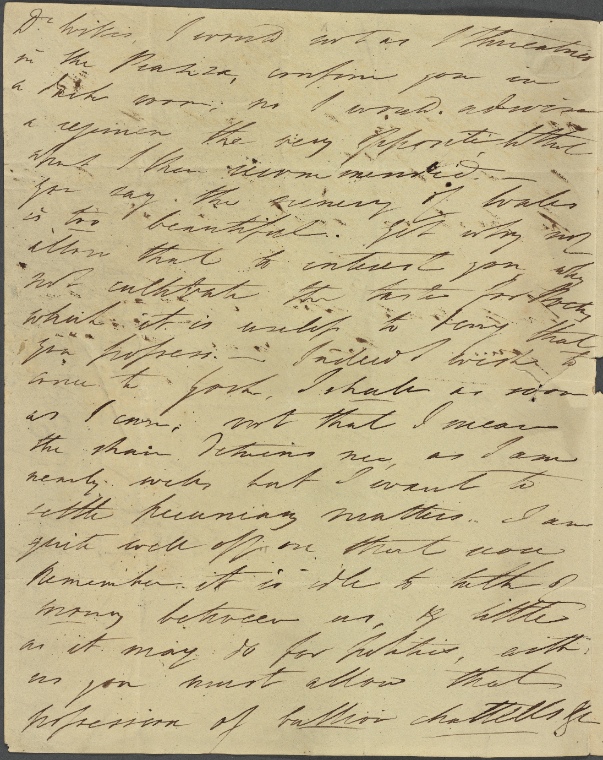 Dr Willis, I would not as I threatened
in the Piazza, confine you in
a dark room; no I would advise
a regimen the very opposite to that
what I then recommended. —
You say the scenery of Wales
is too beautiful. Yet why not
allow that to interest you, why
not cultivate the taste for Poetry
which it is useless to deny that
you possess. — Indeed I wish to
come to York, I shall as soon
as I can; not that I mean
the strain detains me, as I am
nearly well but I want to
settle pecuniary matters. I am
quite well off on that score
Remember it is idle to talk of
money between us, & little
as it may do for politics, with
us you must allow that
possession of bullion chattells &c